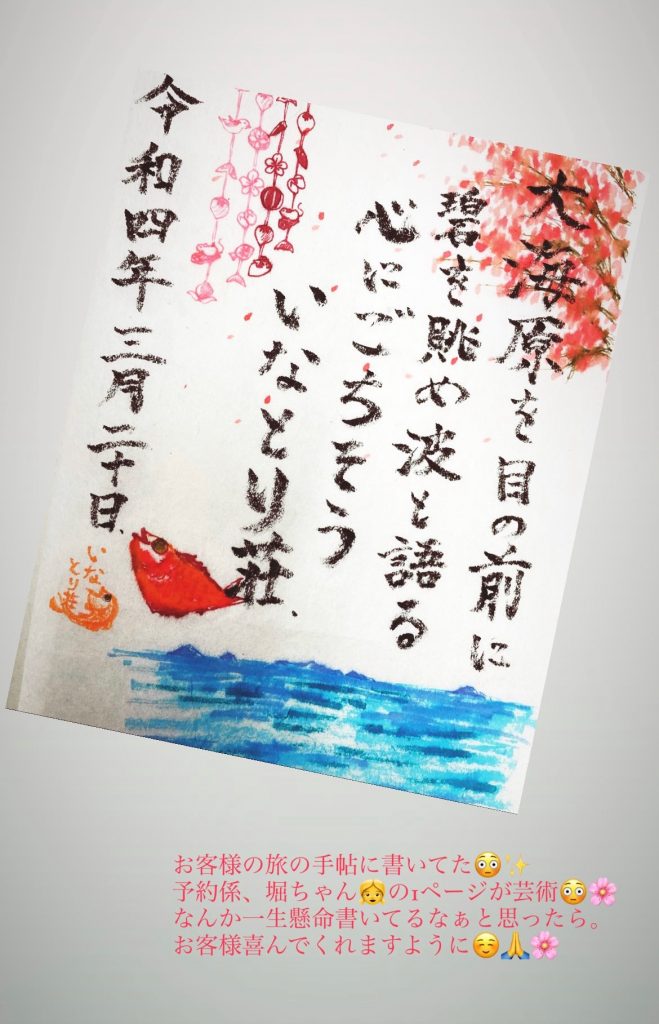 大海原を目の前に
碧を眺め波と語る
心にごちそう
いなとり荘、
令和四年三月二十日、
いな
とり荘
お客様の旅の手帖に書いてた😳✨
予約係、堀ちゃん👧の1ページが芸術😳🌸
なんか一生懸命書いてるなぁと思ったら。
お客様喜んでくれますように☺️🙏🌸